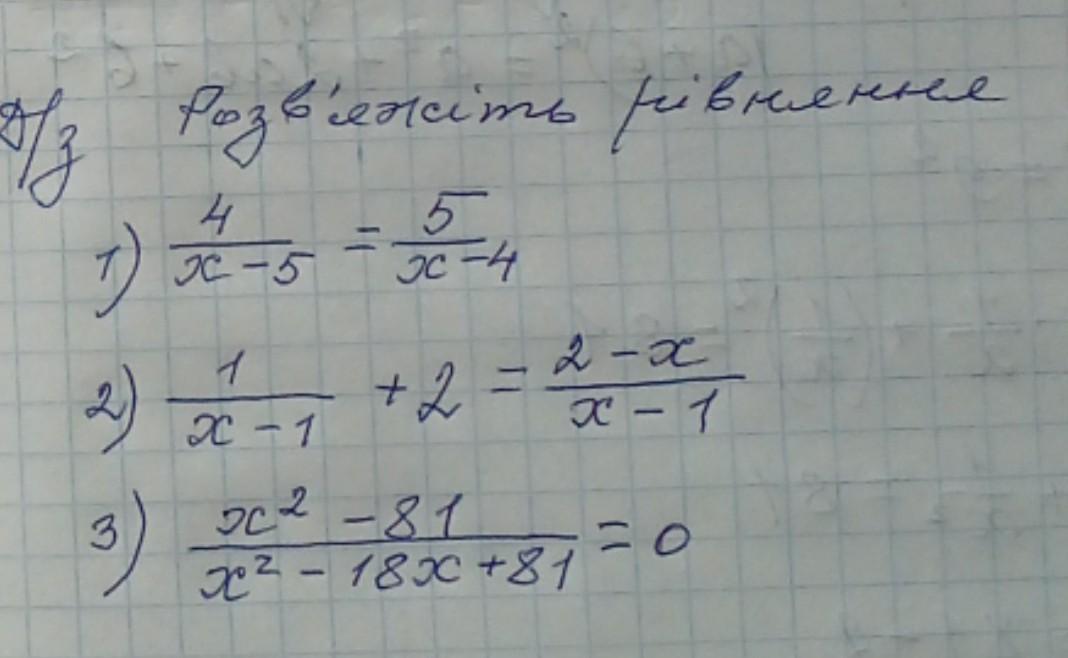 Д/з Розв'яжіть рівняння
1) 4/(x-5) = 5/(x-4)
2) 1/(x-1) + 2 = (2-x)/(x-1)
3) (x² - 81)/(x² - 18x + 81) = 0